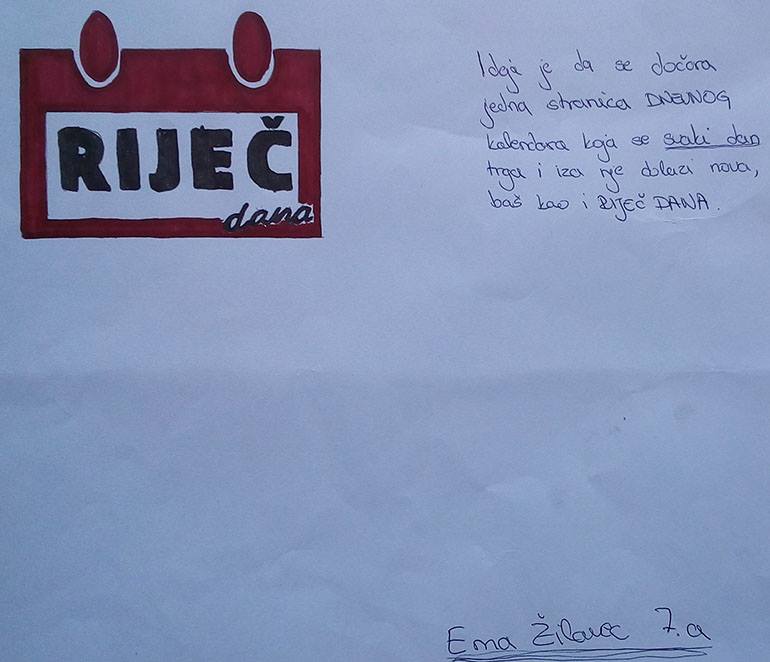 RIJEČ
dana
Ideja je da se dočara
jedna stranica DNEVNOG
kalendara koja se svaki dan
trga i iza nje dolazi nova,
baš kao i RIJEČ DANA.
Ema Žilavec 7.a